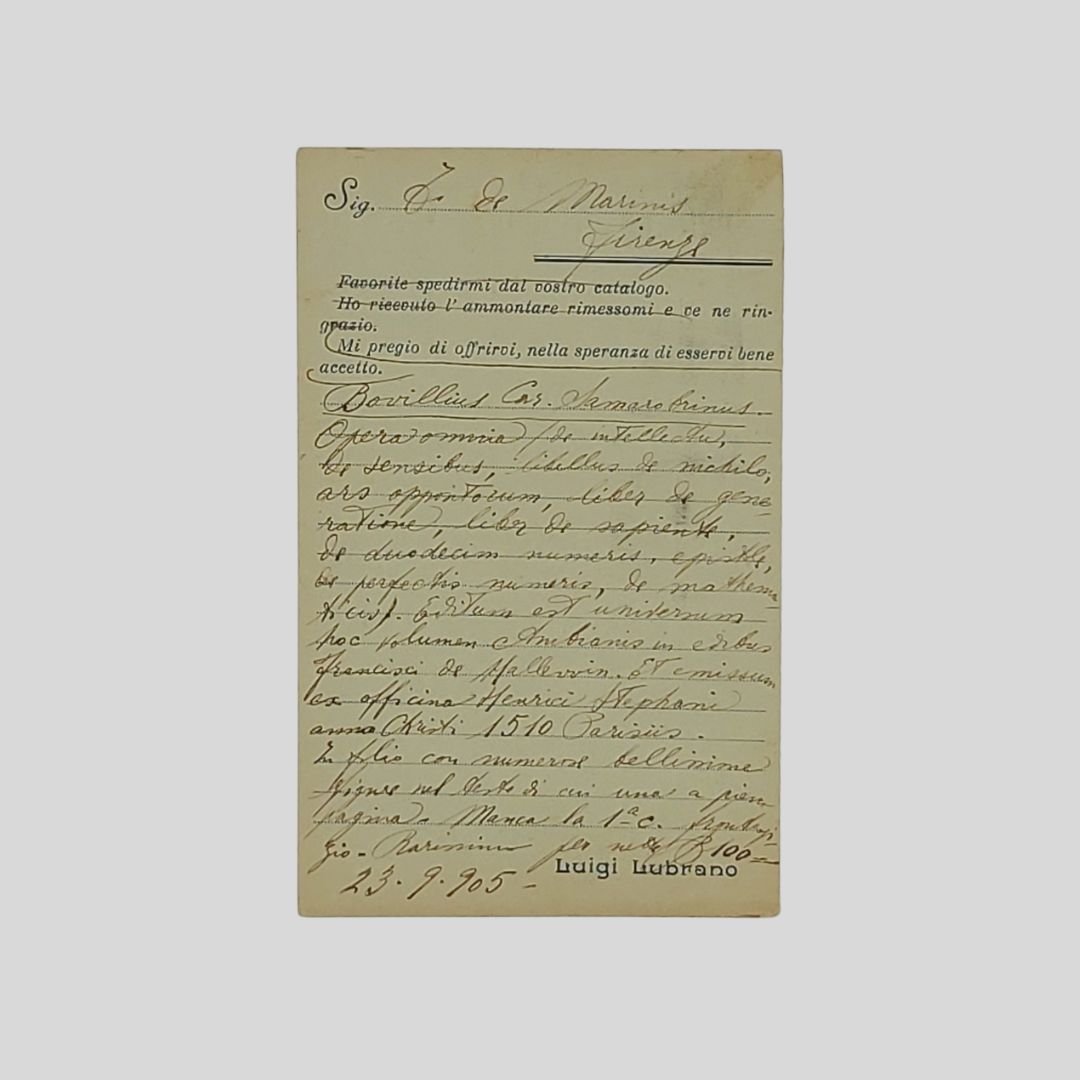 Sig. T. de Marinis
Firenze
Favorite spedirmi dal vostro catalogo.
Ho ricevuto l' ammontare rimessomi e ve ne rin-
grazio.
Mi pregio di offrirvi, nella speranza di esservi bene
accetto.
Bovillius Car. Samarobrinus.
Opera omnia (de intellectu,
de sensibus, libellus de nichilo,
ars oppositorum, liber de gene-
ratione, liber de sapiente,
de duodecim numeris, epistole,
de perfectis numeris, de mathema-
ticis). Editum est universum
hoc volumen Ambianis in edibus
Francisci de Hallewin. Et emissum
ex officina Henrici Stephani
anno Christi 1510 Parisiis.
In folio con numerose bellissime
figure nel testo di cui una a piena
pagina. Manca la 1ª c. frontespi-
zio - Rarissimo per nette 100=
Luigi Lubrano
23.9.905-